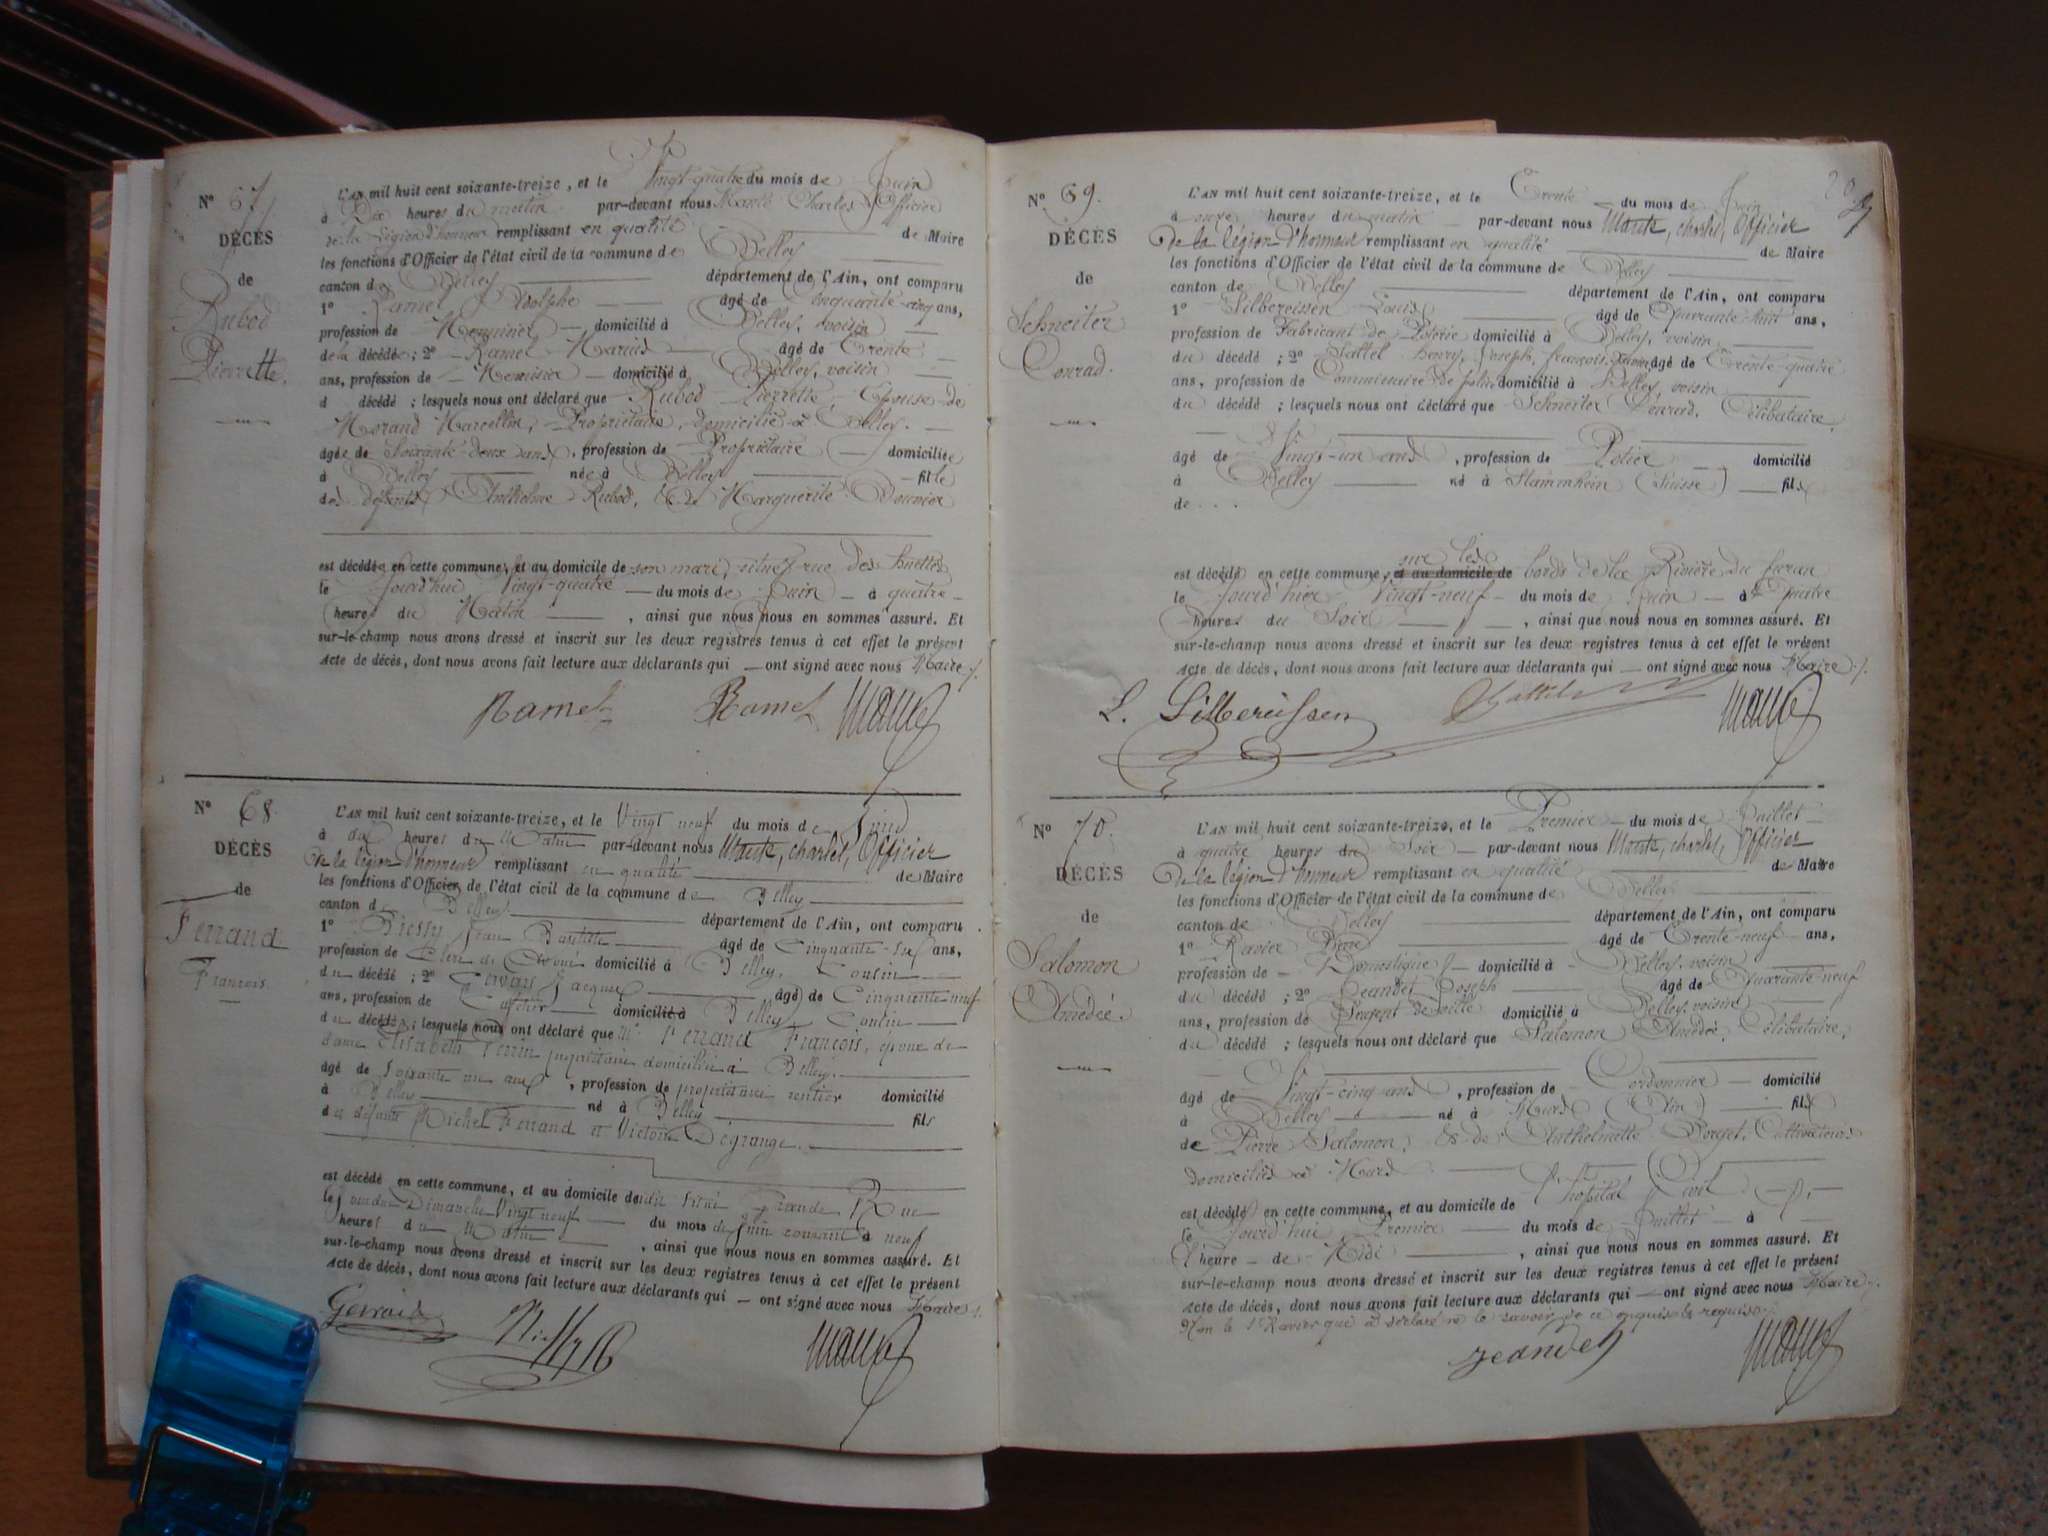 N° 67
DÉCÈS
de
Rubod
Pierrette.
L'AN mil huit cent soixante-treize, et le Vingt-quatre du mois de Juin
à Dix heures du matin par-devant nous Charles, Officier
de la Légion d'honneur remplissant en qualité de Maire
les fonctions d'Officier de l'état civil de la commune de Belley
canton de Belley département de l'Ain, ont comparu
1° Ramel Adolphe âgé de Cinquante-cinq ans,
profession de Menuisier domicilié à Belley, voisin
de la décédée ; 2° Ramel Marius âgé de Trente
ans, profession de Menuisier domicilié à Belley, voisin
d décédé ; lesquels nous ont déclaré que Rubod Pierrette, Epouse de
Morand Marcellin, Propriétaire, domicilié à Belley.
âgée de Soixante-deux ans, profession de Propriétaire domiciliée
à Belley née à Belley fille
des défunts Anthelme Rubod, & de Marguerite
est décédée en cette commune, et au domicile de son mari, situé rue des
le Jourd'hui Vingt-quatre du mois de Juin à quatre
heures du Matin, ainsi que nous nous en sommes assuré. Et
sur-le-champ nous avons dressé et inscrit sur les deux registres tenus à cet effet le présent
Acte de décès, dont nous avons fait lecture aux déclarants qui ont signé avec nous Maire ./.
Ramel Ramel
N° 68
DÉCÈS
de
Ferrand
François.
L'AN mil huit cent soixante-treize, et le Vingt neuf du mois de Juin
à dix heures du Matin par-devant nous charles, Officier
De la légion d'honneur remplissant en qualité de Maire
les fonctions d'Officier de l'état civil de la commune de Belley
canton de Belley département de l'Ain, ont comparu
1° Jean Baptiste âgé de Cinquante-six ans,
profession de Clerc de domicilié à Belley, Cousin
du décédé ; 2° Jacques âgé de Cinquante-neuf
ans, profession de domicilié à Belley Cousin
du décédé ; lesquels nous ont déclaré que Mr Ferrand François, époux de
dame Elisabeth Perrin propriétaire domiciliée à Belley.
âgé de Soixante un ans, profession de propriétaire rentier domicilié
à Belley né à Belley fils
des défunts Michel Ferrand et Victoire Dégrange.
est décédé en cette commune, et au domicile de situé Grande Rue
le Jourdhui Dimanche Vingt neuf du mois de Juin courant à neuf
heures du Matin, ainsi que nous nous en sommes assuré. Et
sur-le-champ nous avons dressé et inscrit sur les deux registres tenus à cet effet le présent
Acte de décès, dont nous avons fait lecture aux déclarants qui ont signé avec nous Maire ./.
N° 69.
DÉCÈS
de
Schneiter
Conrad.
L'AN mil huit cent soixante-treize, et le Trente du mois de Juin
à onze heures du matin par-devant nous charles, Officier
De la légion d'honneur remplissant en qualité de Maire
les fonctions d'Officier de l'état civil de la commune de Belley
canton de Belley département de l'Ain, ont comparu
1° Silbereissen Louis âgé de Quarante-huit ans,
profession de Fabricant de Poterie domicilié à Belley, voisin
du décédé ; 2° Sattel henry, Joseph, françois, âgé de Trente-quatre
ans, profession de Commissaire de police domicilié à Belley, voisin
du décédé ; lesquels nous ont déclaré que Schneiter Conrad, Célibataire,
âgé de Vingt-un ans, profession de Potier domicilié
à Belley né à Stammheim (Suisse) fils
de . . .
sur les
est décédé en cette commune, et au domicile de bords de la Rivière du furan
le Jourd'hier Vingt-neuf du mois de Juin à Quatre
heures du Soir, ainsi que nous nous en sommes assuré. Et
sur-le-champ nous avons dressé et inscrit sur les deux registres tenus à cet effet le présent
Acte de décès, dont nous avons fait lecture aux déclarants qui ont signé avec nous Maire ./.
L. Silbereissen Sattel
N° 70.
DÉCÈS
de
Salomon
Amédée.
L'AN mil huit cent soixante-treize, et le Premier du mois de Juillet
à quatre heures du Soir par-devant nous charles, Officier
De la légion d'honneur remplissant en qualité de Maire
les fonctions d'Officier de l'état civil de la commune de Belley
canton de Belley département de l'Ain, ont comparu
1° Ravier Pierre âgé de Trente-neuf ans,
profession de Domestique domicilié à Belley, voisin
du décédé ; 2° Jeandet Joseph âgé de Quarante-neuf
ans, profession de Sergent de ville domicilié à Belley, voisin
du décédé ; lesquels nous ont déclaré que Salomon Amédée, Célibataire,
âgé de Vingt-cinq ans, profession de Cordonnier domicilié
à Belley né à Murs (Ain) fils
de Pierre Salomon, & de Anthelmette Borget, Cultivateurs
domiciliés à Murs
est décédé en cette commune, et au domicile de l'hopital Civil
le Jourd'hui Premier du mois de Juillet à
l'heure de Midi, ainsi que nous nous en sommes assuré. Et
sur-le-champ nous avons dressé et inscrit sur les deux registres tenus à cet effet le présent
Acte de décès, dont nous avons fait lecture aux déclarants qui ont signé avec nous Maire ./.
Non le Sr Ravier qui a déclaré ne le savoir de ce enquis & requis ./.
Jeandet